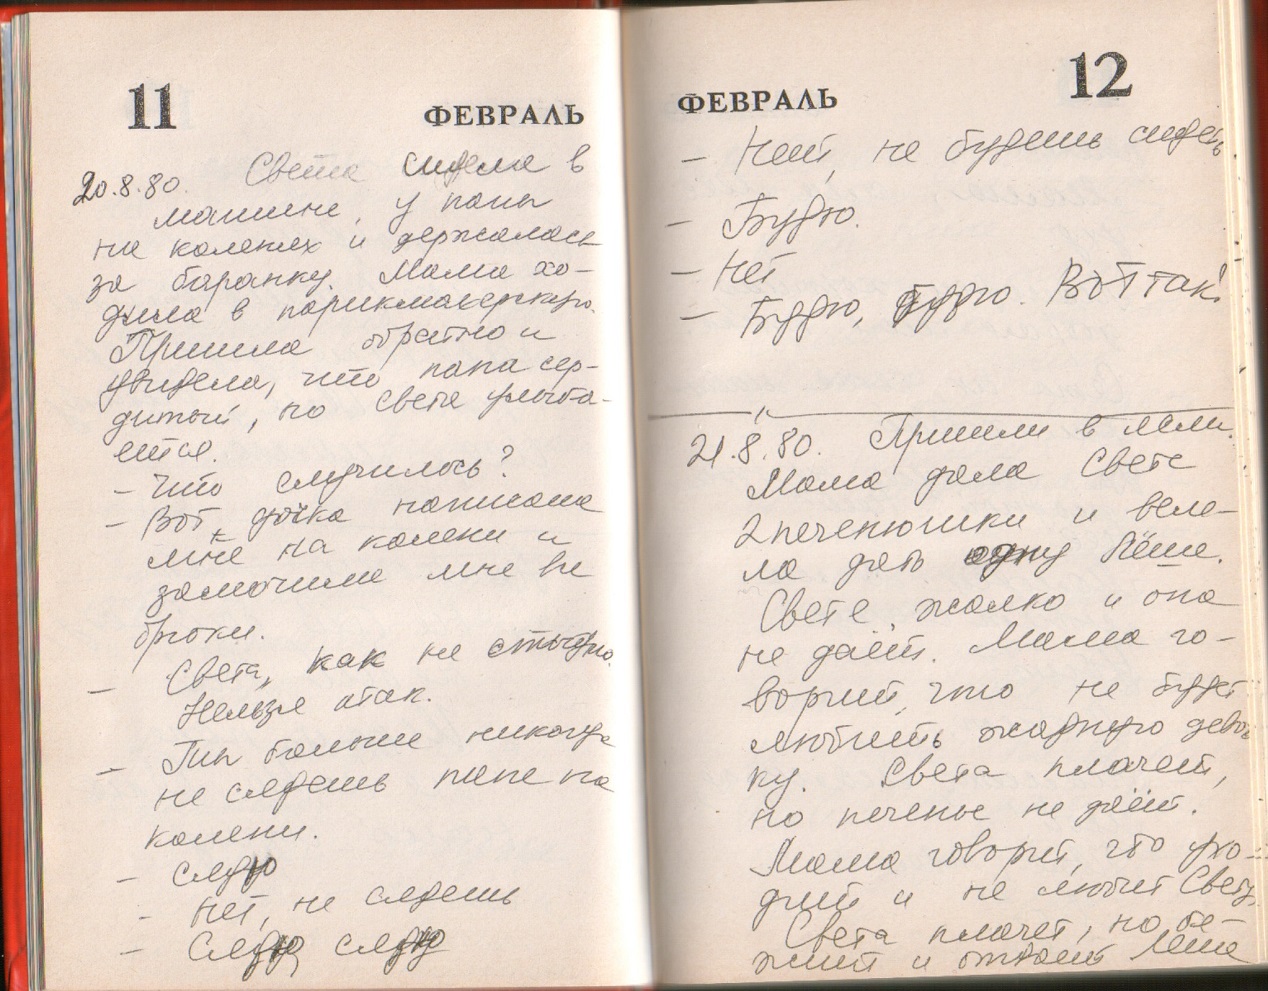 11
ФЕВРАЛЬ
20.8.80. Света сидела в
машине, у папы
на коленях и держалась
за баранку. Мама хо-
дила в парикмахерскую.
Пришла обратно и
увидела, что папа сер-
дитый, но Света улыба-
ется.
- Что случилось?
- Вот, дочка написала
мне на колени и
замочила мне все
брюки.
- Света, как не стыдно.
Нельзя так.
- Ты больше никогда
не сядешь папе на
колени.
- Сяду
- Нет, не сядешь
- Сяду, сяду
ФЕВРАЛЬ
12
- Нет, не будешь сидеть
- Будю.
- Нет
- Будю, будю. Вот так!
21.8.80. Пришли в ясли.
Мама дала Свете
2 печенюшки и веле-
ла дать одну Лёше.
Свете жалко и она
не даёт. Мама го-
ворит, что не будет
любить жадную девоч-
ку. Света плачет,
но печенье не даёт.
Мама говорит, что ухо-
дит и не любит Свету.
Света плачет, но бе-
жит и отдаёт Лёше